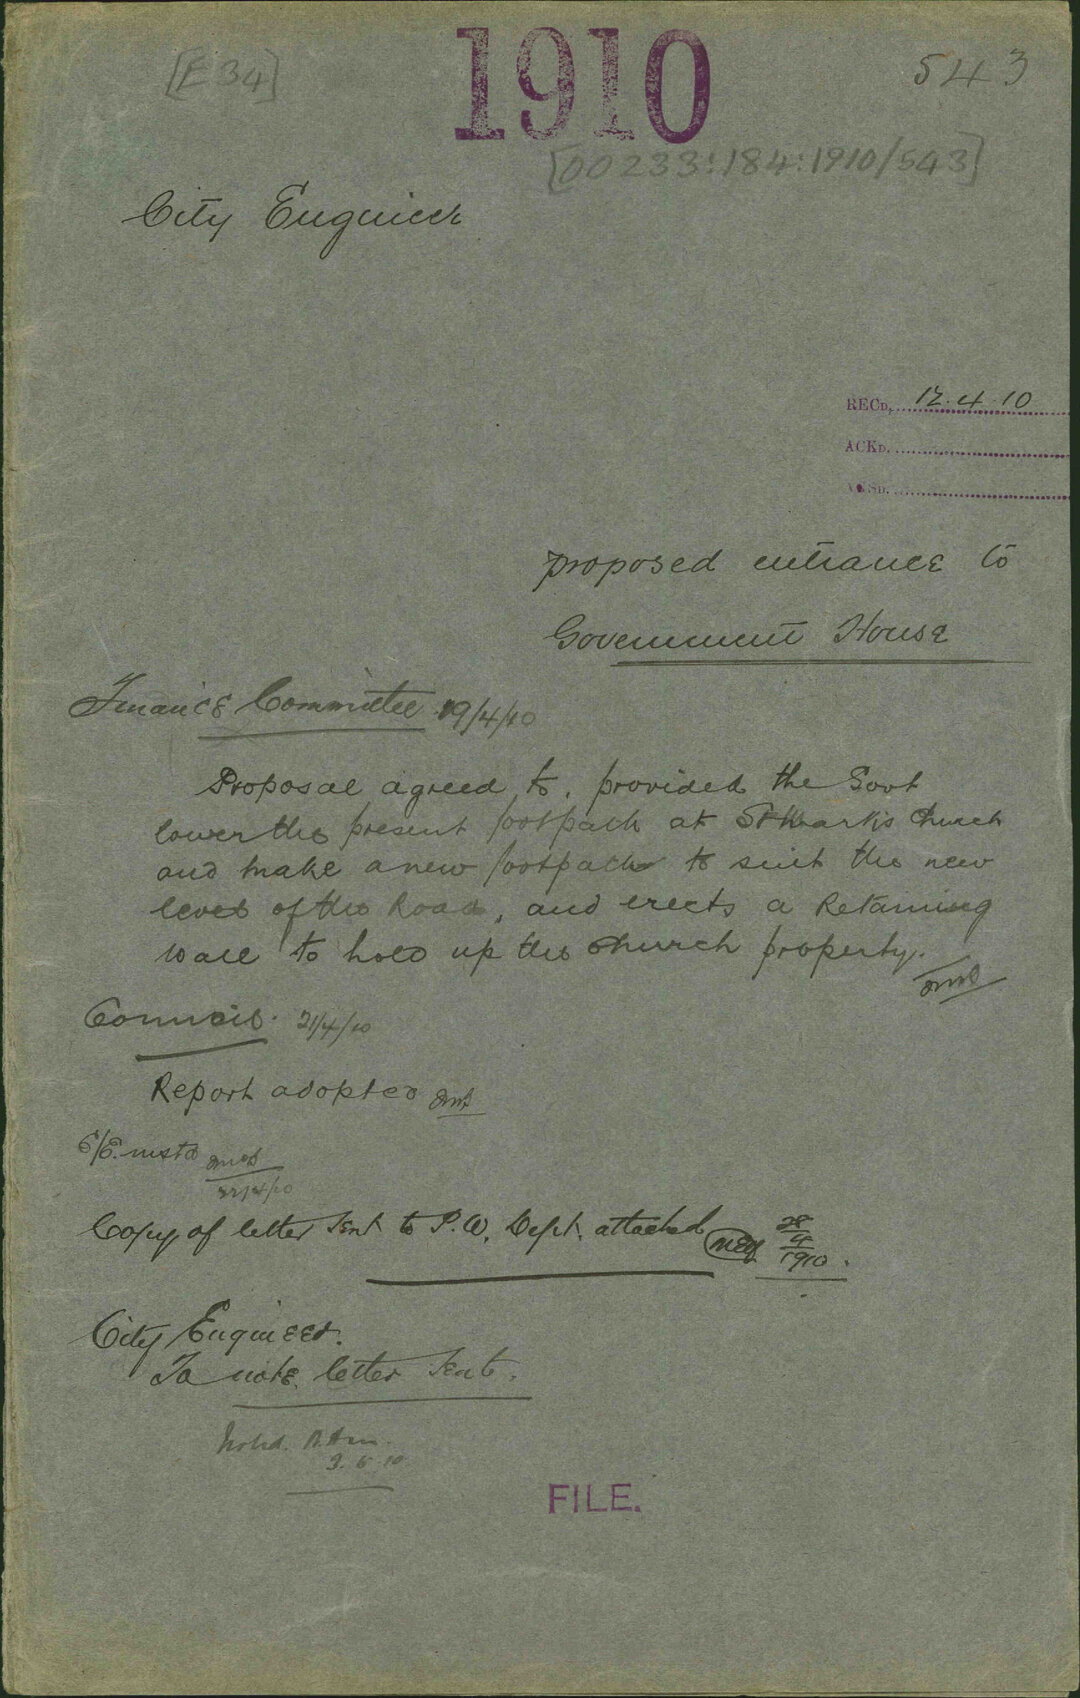 [E34]
1910
543
[00233:184:1910/543]
City Engineer
RECD. 12.4.10
ACKD.
proposed entrance to
Government House
Finance Committee 19/4/10
Proposal agreed to, provided the Govt
lower the present footpath at St Mark's Church
and make a new footpath to suit the new
level of the Road, and erects a Retaining
wall to hold up the Church property.
Council. 21/4/10
Report adopted
C/E. instd
22/4/10
Copy of letter sent to P.W. Dept. attached
28
4
1910.
City Engineer.
To note letter sent.
Noted.
3.5.10
FILE.